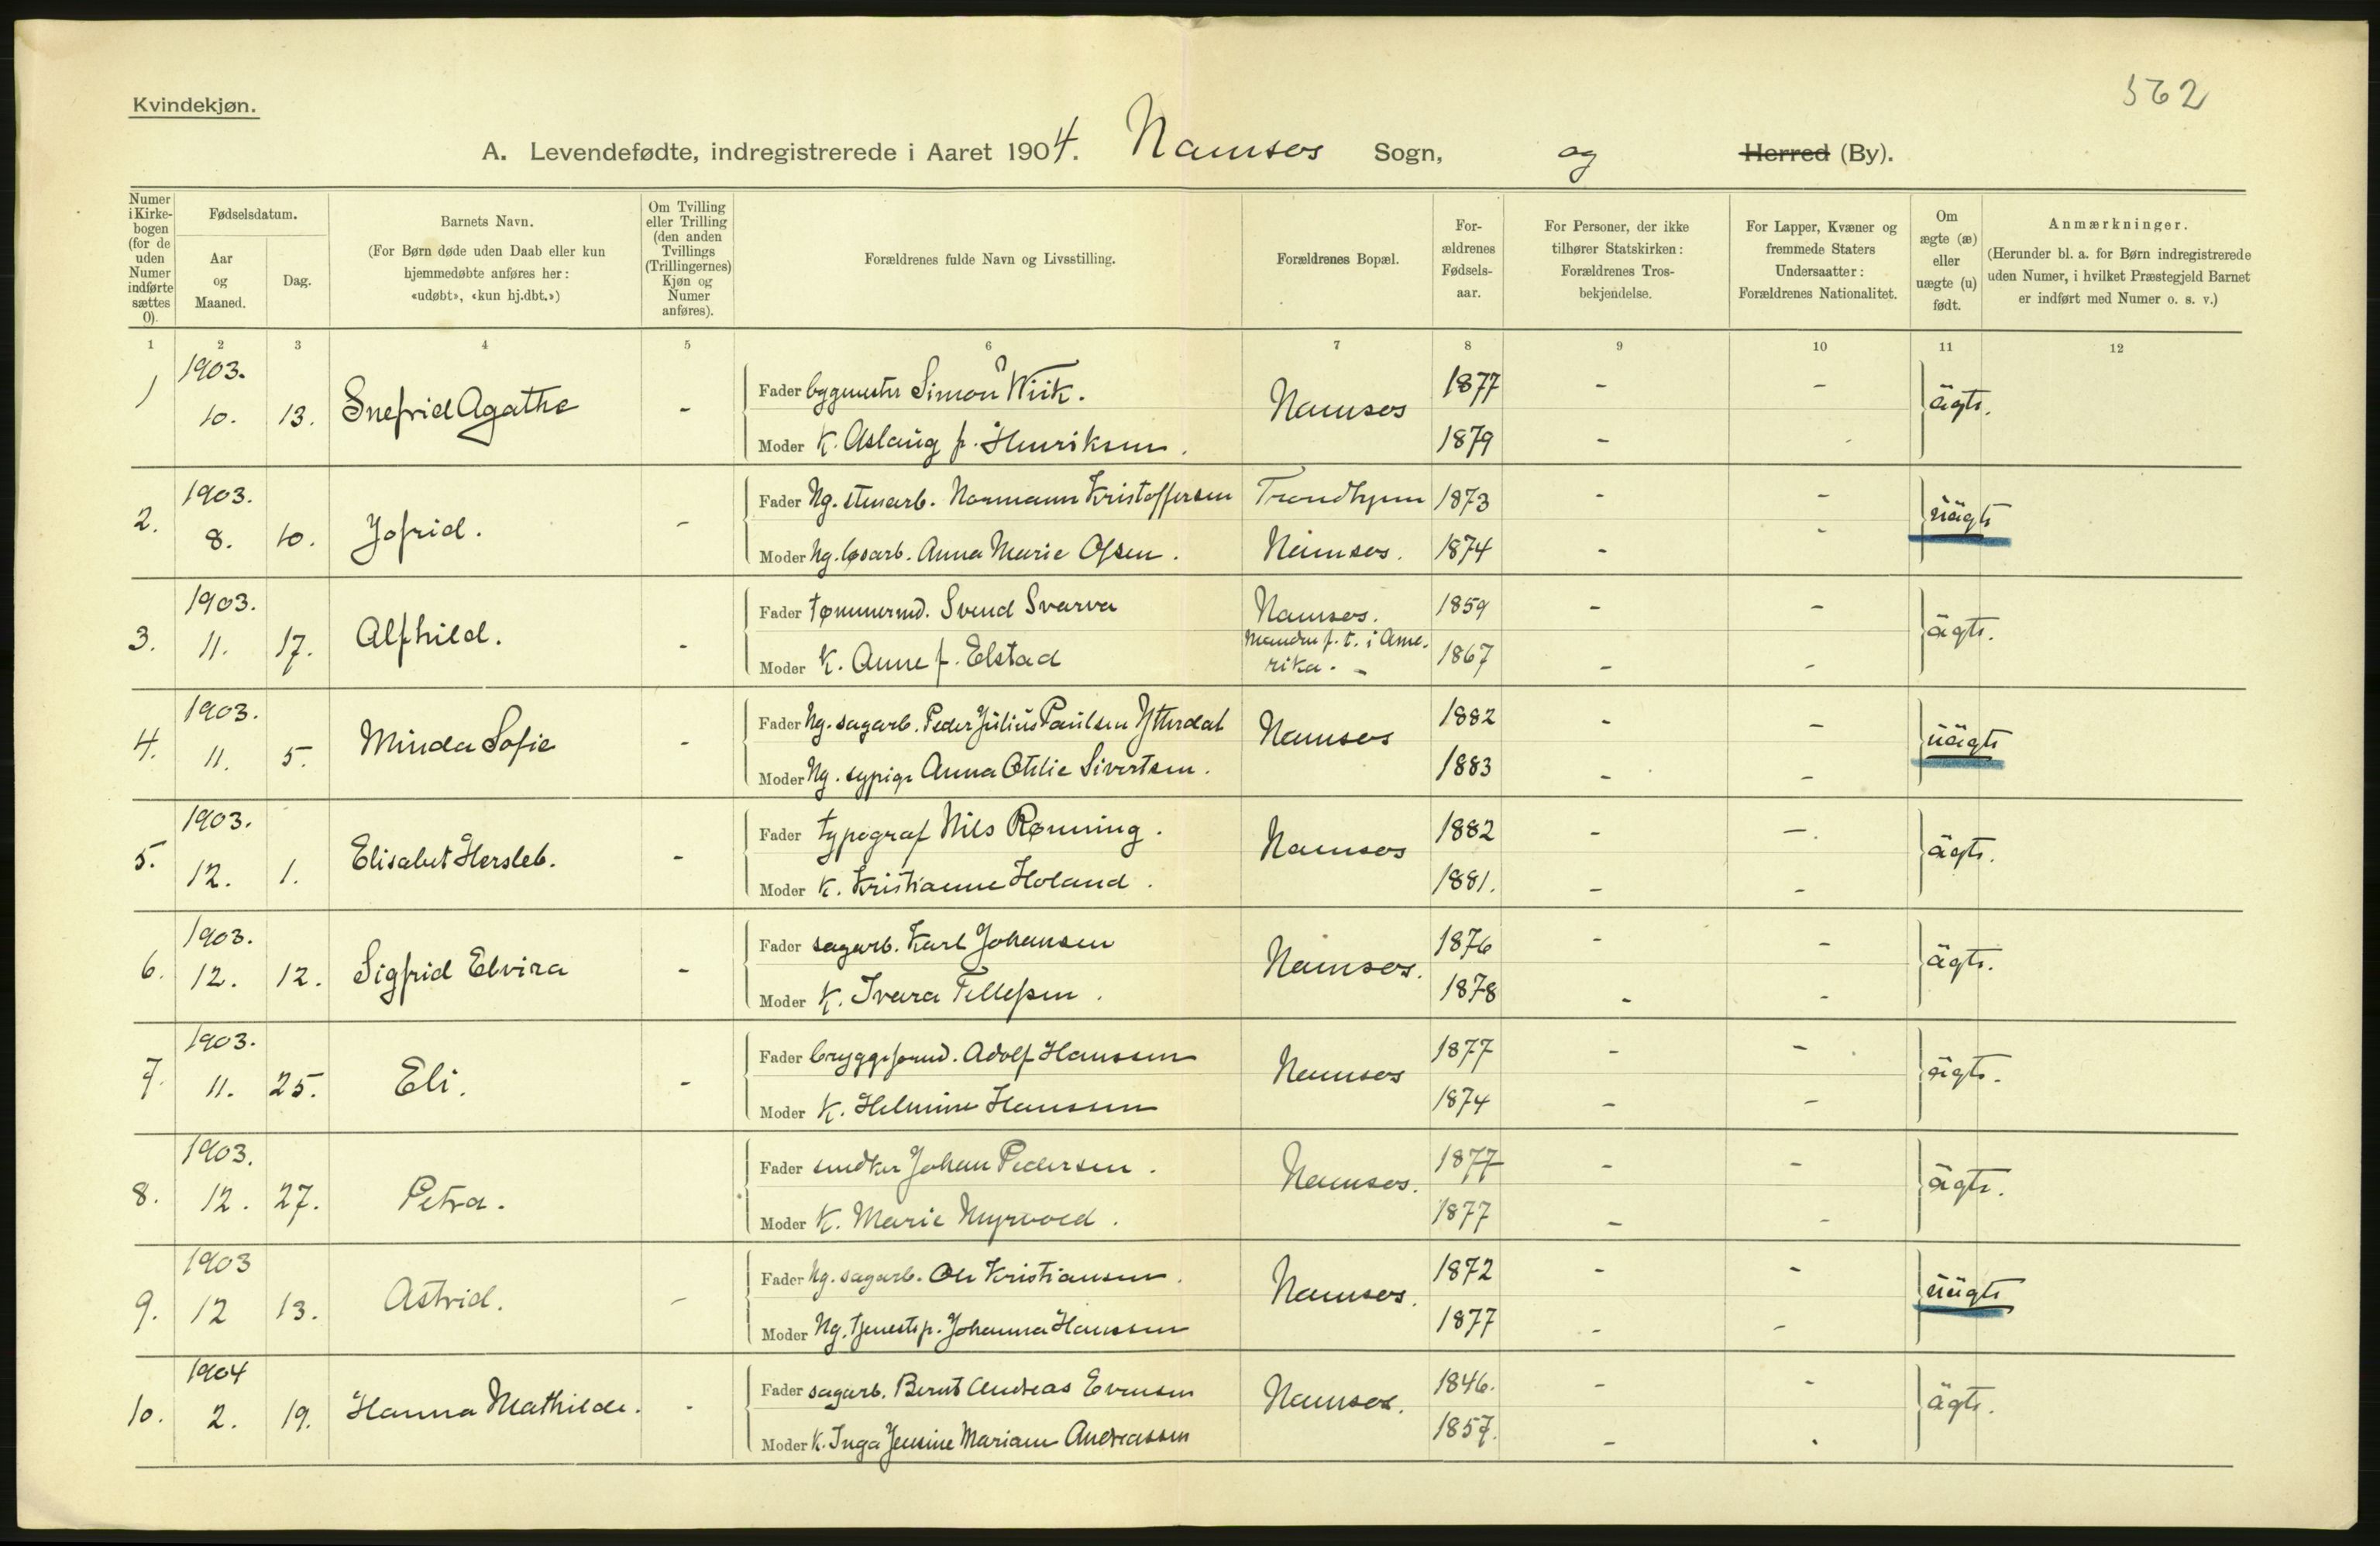 Kvindekjøn.
562
A. Levendefødte, indregistrerede i Aaret 1904. Namsos Sogn, og Herred (By).
Numer i Kirke-bogen (for de uden Numer indførte sættes 0).
Fødselsdatum.
Aar og Maaned.
Dag.
Barnets Navn.
(For Børn døde uden Daab eller kun
hjemmedøbte anføres her:
«udøbt», «kun hj.dbt.»)
Om Tvilling
eller Trilling
(den anden
Tvillings
(Trillingernes)
Kjøn og
Numer
anføres).
Forældrenes fulde Navn og Livsstilling.
Forældrenes Bopæl.
For-
ældrenes
Fødsels-
aar.
For Personer, der ikke
tilhører Statskirken:
Forældrenes Tros-
bekjendelse.
For Lapper, Kvæner og
fremmede Staters
Undersaatter:
Forældrenes Nationalitet.
Om
ægte (æ)
eller
uægte (u)
født.
Anmærkninger.
(Herunder bl. a. for Børn indregistrerede
uden Numer, i hvilket Præstegjeld Barnet
er indført med Numer o. s. v.)
1 2 3 4 5 6 7 8 9 10 11 12
1903.
1) 10. 13. Snefrid Agathe -
Fader bygmester Simon Wiik. Namsos 1877 - - ägte.
Moder K. Aslaug f. Henriksen. 1879 -
1903.
2. 8. 10. Jofrid. -
Fader Ug. stenarb. Normann Kristoffersen Trondhjem 1873 - - üägte
Moder Ug. løsarb. Anna Marie Olsen. Namsos. 1874 - -
1903.
3. 11. 17. Alfhild. -
Fader tømmermd. Svend Svarva Namsos. 1859 - - ägte.
Manden p. t. i Ame-
Moder K. Anne f. Elstad rika. - 1867 - -
1903.
4. 11. 5. Minda Sofie -
Fader Ug. sagarb. Peder Julius Paulsen Ytterdal Namsos 1882 - - üägte
Moder Ug. sypige Anna Otilie Sivertsen. 1883 - -
1903.
5. 12. 1. Elisabet Hersleb. -
Fader typograf Nils Rønning. Namsos 1882 - -. ägte.
Moder K. Kristianne Holand. 1881. - -
1903.
6. 12. 12. Sigfrid Elvira -
Fader sagarb. Karl Johansen Namsos. 1876 - - ägte.
Moder K. Ivara Tellefsen. 1878 - -
1903.
7. 11. 25. Eli. -
Fader bryggeformd. Adolf Hanssen Namsos 1877 - - ägte.
Moder K. Helmine Hanssen 1874 - -
1903.
8. 12. 27. Petra.
Fader snedker Johan Pedersen. Namsos. 1877 - - ägte.
Moder K. Marie Myrvold. 1877 - -
1903
9. 12 13. Astrid. -
Fader Ug. sagarb. Ole Kristiansen. Namsos. 1872 - - üägte
Moder Ug. tjenestep. Johanna Hanssen 1877 - -
1904
10. 2. 19. Hanna Mathilde. -
Fader sagarb. Bernt Andreas Evensen Namsos. 1846. - - ägte.
Moder K. Inga Jensine Mariane Andreassen 1857. -